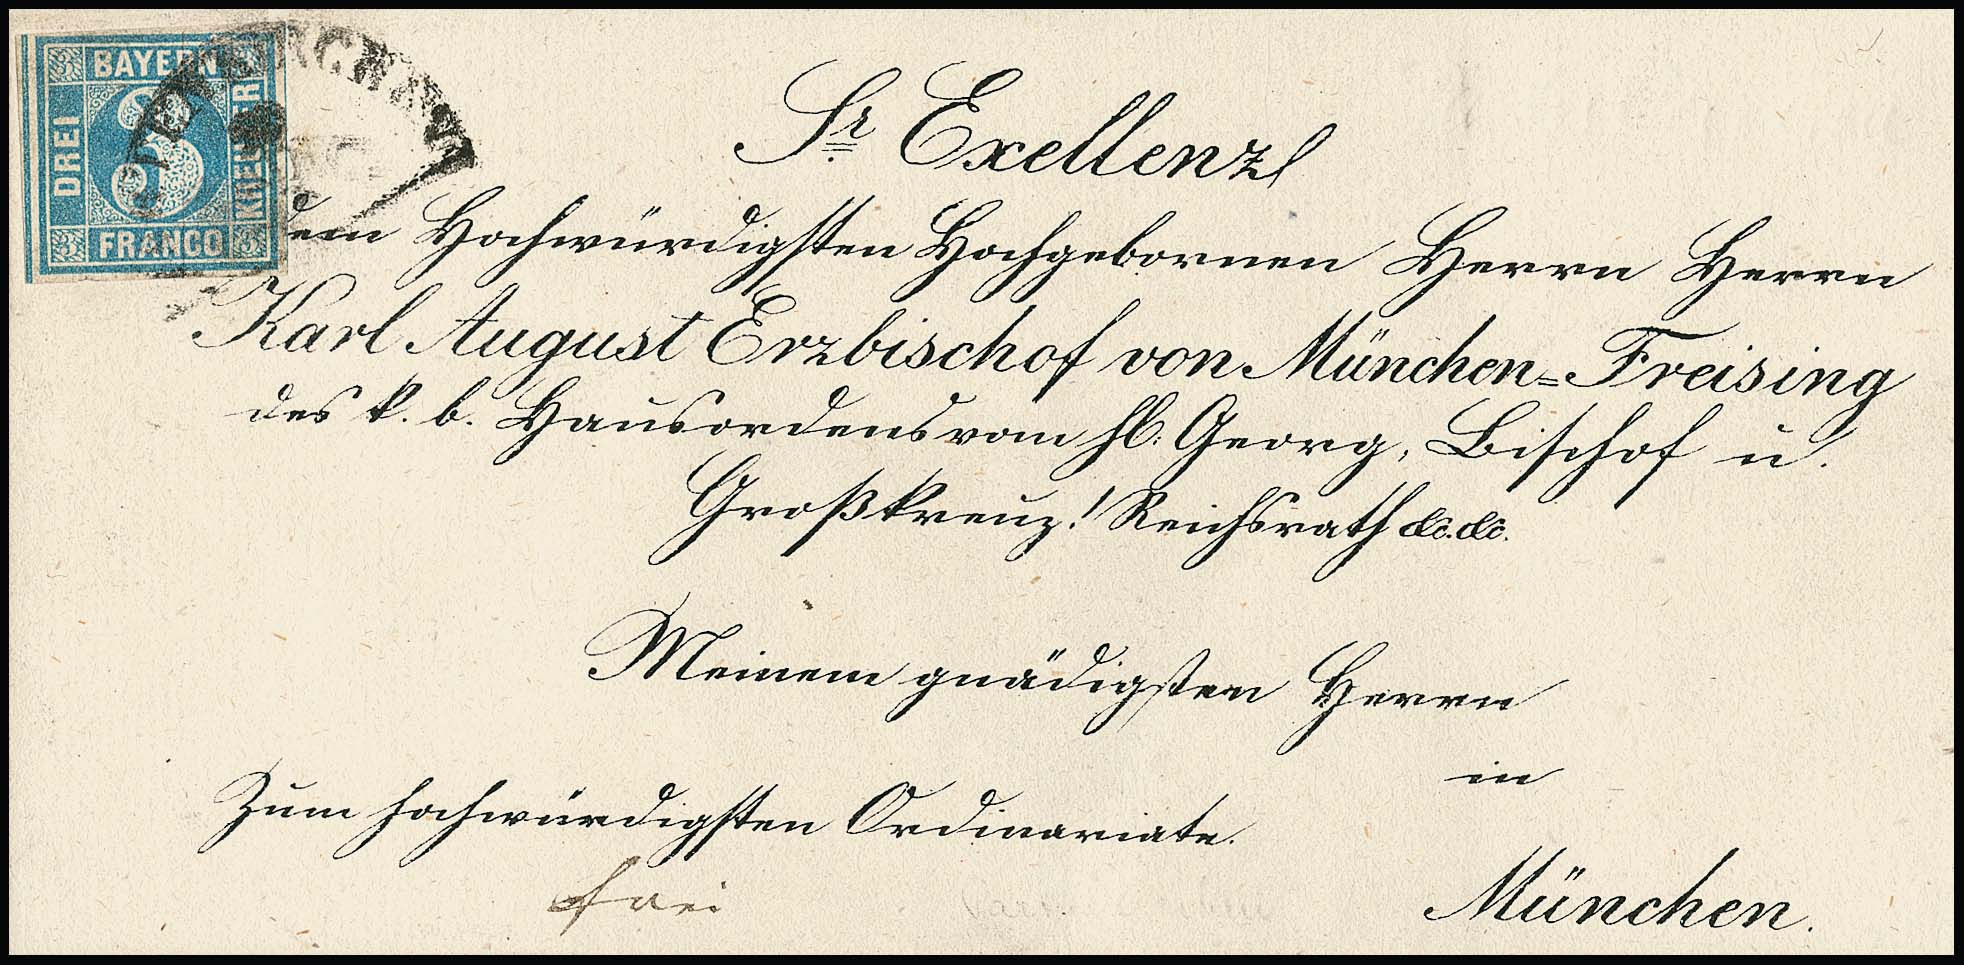 BAYERN
DREI
3
KREUZER
FRANCO
Sr. Exellenz
dem Hochwürdigsten Hochgebornen Herrn Herrn
Karl August Erzbischof von München=Freising
des k. b. Hausordens vom hl. Georg, Bischof u.
Großkreuz! Reichsrath &c. &c.
Meinem gnädigsten Herrn
in
Zum hochwürdigsten Ordinariate.
frei
München.